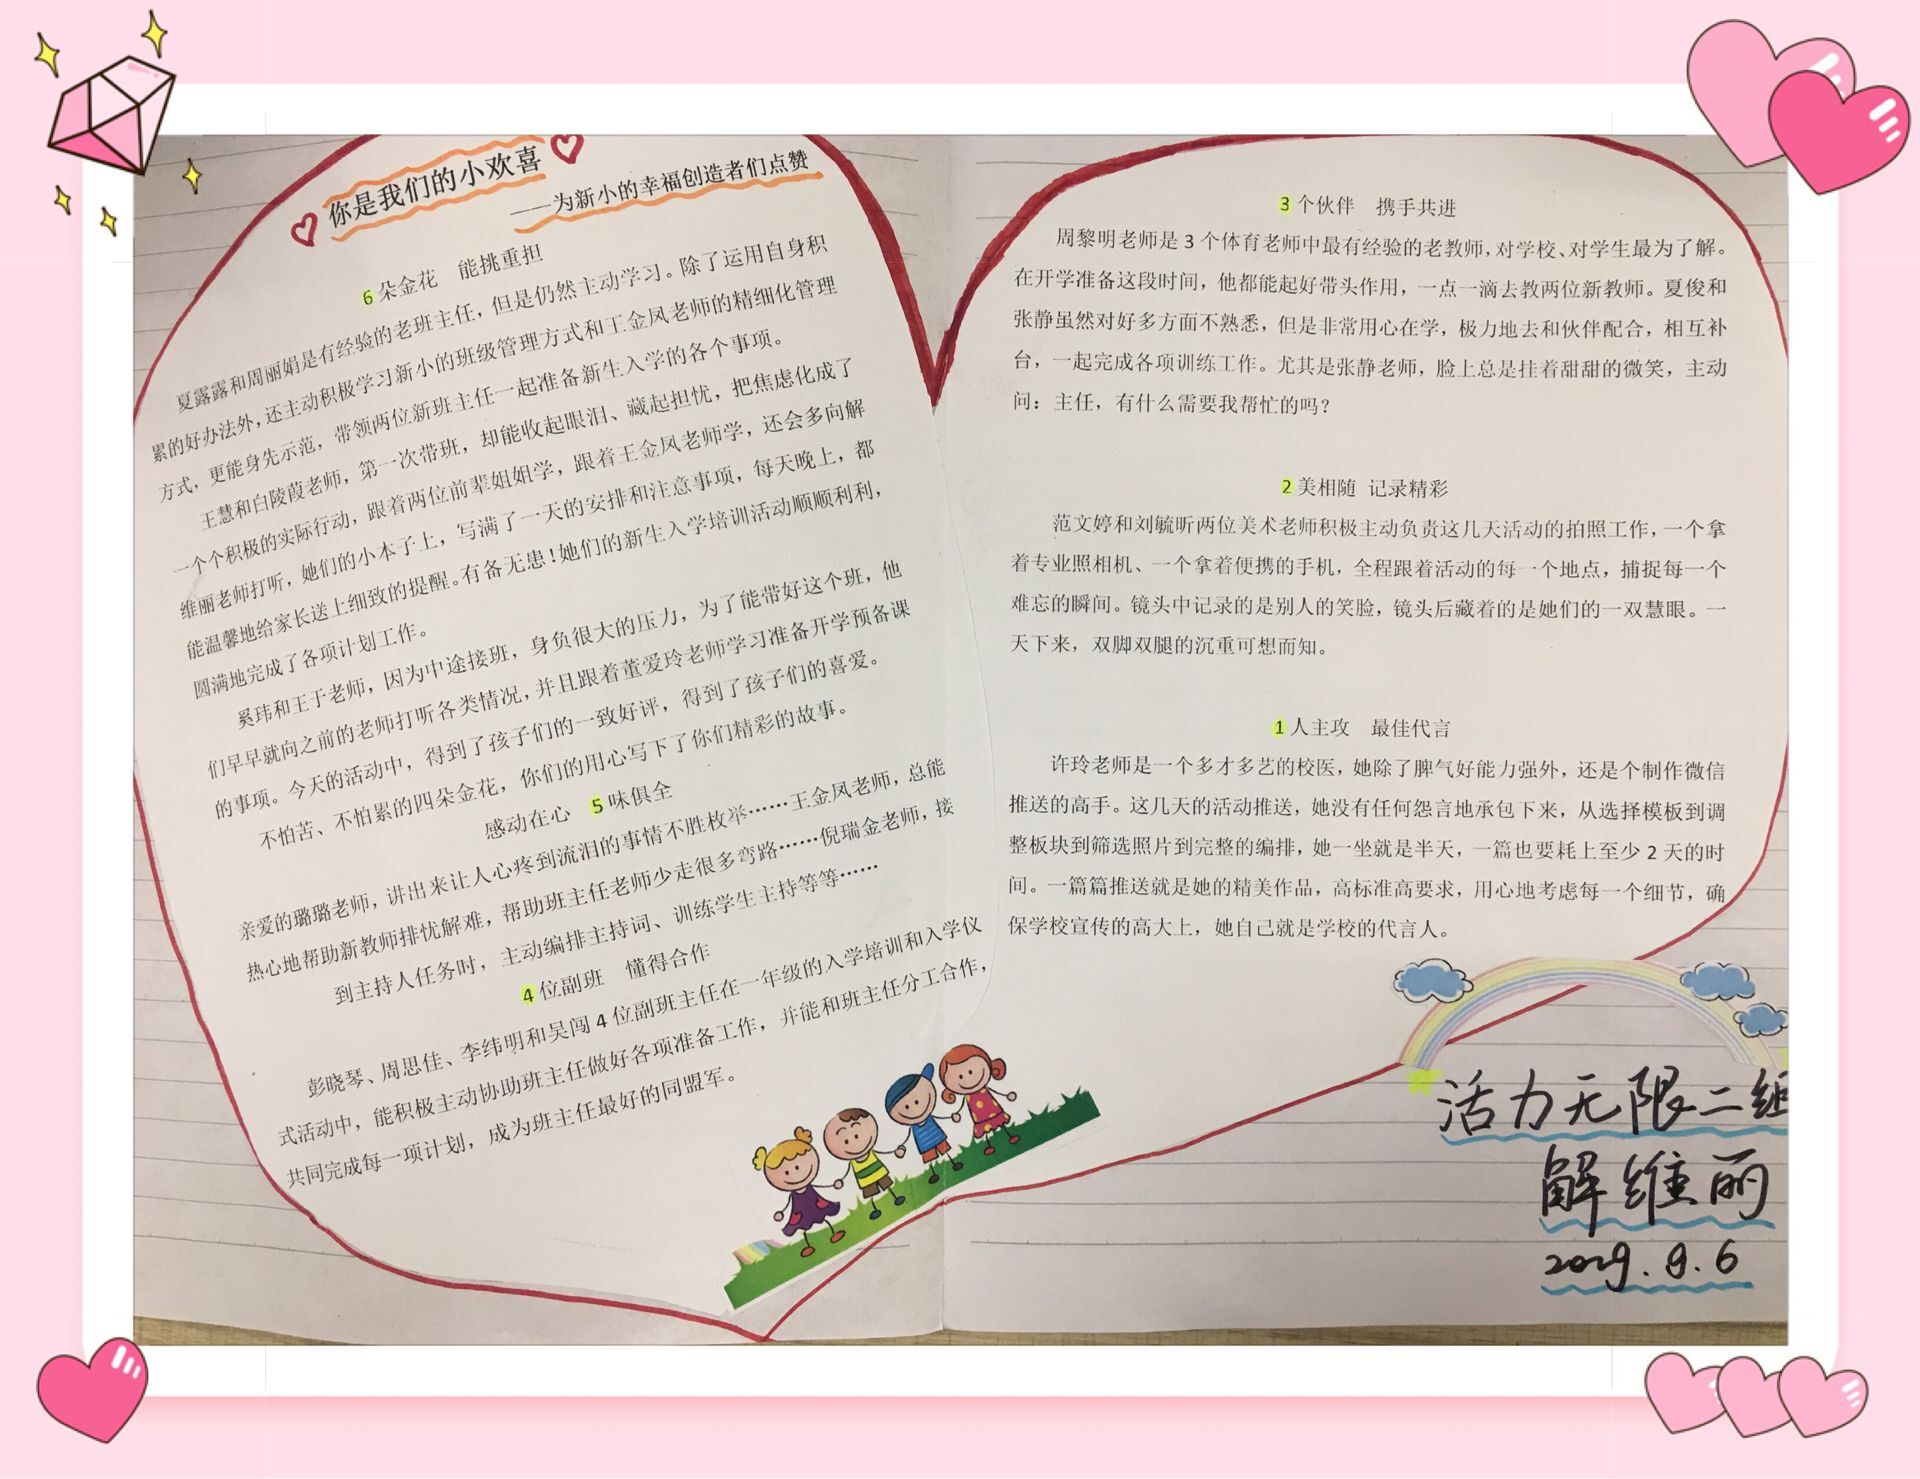 你是我们的小欢喜
——为新小的幸福创造者们点赞
6 朵金花 能挑重担
夏露露和周丽娟是有经验的老班主任，但是仍然主动学习。除了运用自身积
累的好办法外，还主动积极学习新小的班级管理方式和王金凤老师的精细化管理
方式，更能身先示范，带领两位新班主任一起准备新生入学的各个事项。
王慧和白陵葭老师，第一次带班，却能收起眼泪、藏起担忧，把焦虑化成了
一个个积极的实际行动，跟着两位前辈姐姐学，跟着王金凤老师学，还会多向解
维丽老师打听，她们的小本子上，写满了一天的安排和注意事项，每天晚上，都
能温馨地给家长送上细致的提醒。有备无患！她们的新生入学培训活动顺顺利利，
圆满地完成了各项计划工作。
奚玮和王于老师，因为中途接班，身负很大的压力，为了能带好这个班，他
们早早就向之前的老师打听各类情况，并且跟着董爱玲老师学习准备开学预备课
的事项。今天的活动中，得到了孩子们的一致好评，得到了孩子们的喜爱。
不怕苦、不怕累的四朵金花，你们的用心写下了你们精彩的故事。
感动在心 5 味俱全
亲爱的璐璐老师，讲出来让人心疼到流泪的事情不胜枚举……王金凤老师，总能
热心地帮助新教师排忧解难，帮助班主任老师少走很多弯路……倪瑞金老师，接
到主持人任务时，主动编排主持词、训练学生主持等等……
4 位副班 懂得合作
彭晓琴、周思佳、李纬明和吴闯 4 位副班主任在一年级的入学培训和入学仪
式活动中，能积极主动协助班主任做好各项准备工作，并能和班主任分工合作，
共同完成每一项计划，成为班主任最好的同盟军。
3 个伙伴 携手共进
周黎明老师是 3 个体育老师中最有经验的老教师，对学校、对学生最为了解。
在开学准备这段时间，他都能起好带头作用，一点一滴去教两位新教师。夏俊和
张静虽然对好多方面不熟悉，但是非常用心在学，极力地去和伙伴配合，相互补
台，一起完成各项训练工作。尤其是张静老师，脸上总是挂着甜甜的微笑，主动
问：主任，有什么需要我帮忙的吗？
2 美相随 记录精彩
范文婷和刘毓昕两位美术老师积极主动负责这几天活动的拍照工作，一个拿
着专业照相机、一个拿着便携的手机，全程跟着活动的每一个地点，捕捉每一个
难忘的瞬间。镜头中记录的是别人的笑脸，镜头后藏着的是她们的一双慧眼。一
天下来，双脚双腿的沉重可想而知。
1 人主攻 最佳代言
许玲老师是一个多才多艺的校医，她除了脾气好能力强外，还是个制作微信
推送的高手。这几天的活动推送，她没有任何怨言地承包下来，从选择模板到调
整板块到筛选照片到完整的编排，她一坐就是半天，一篇也要耗上至少 2 天的时
间。一篇篇推送就是她的精美作品，高标准高要求，用心地考虑每一个细节，确
保学校宣传的高大上，她自己就是学校的代言人。
活力无限二组
解维丽
2019.9.6